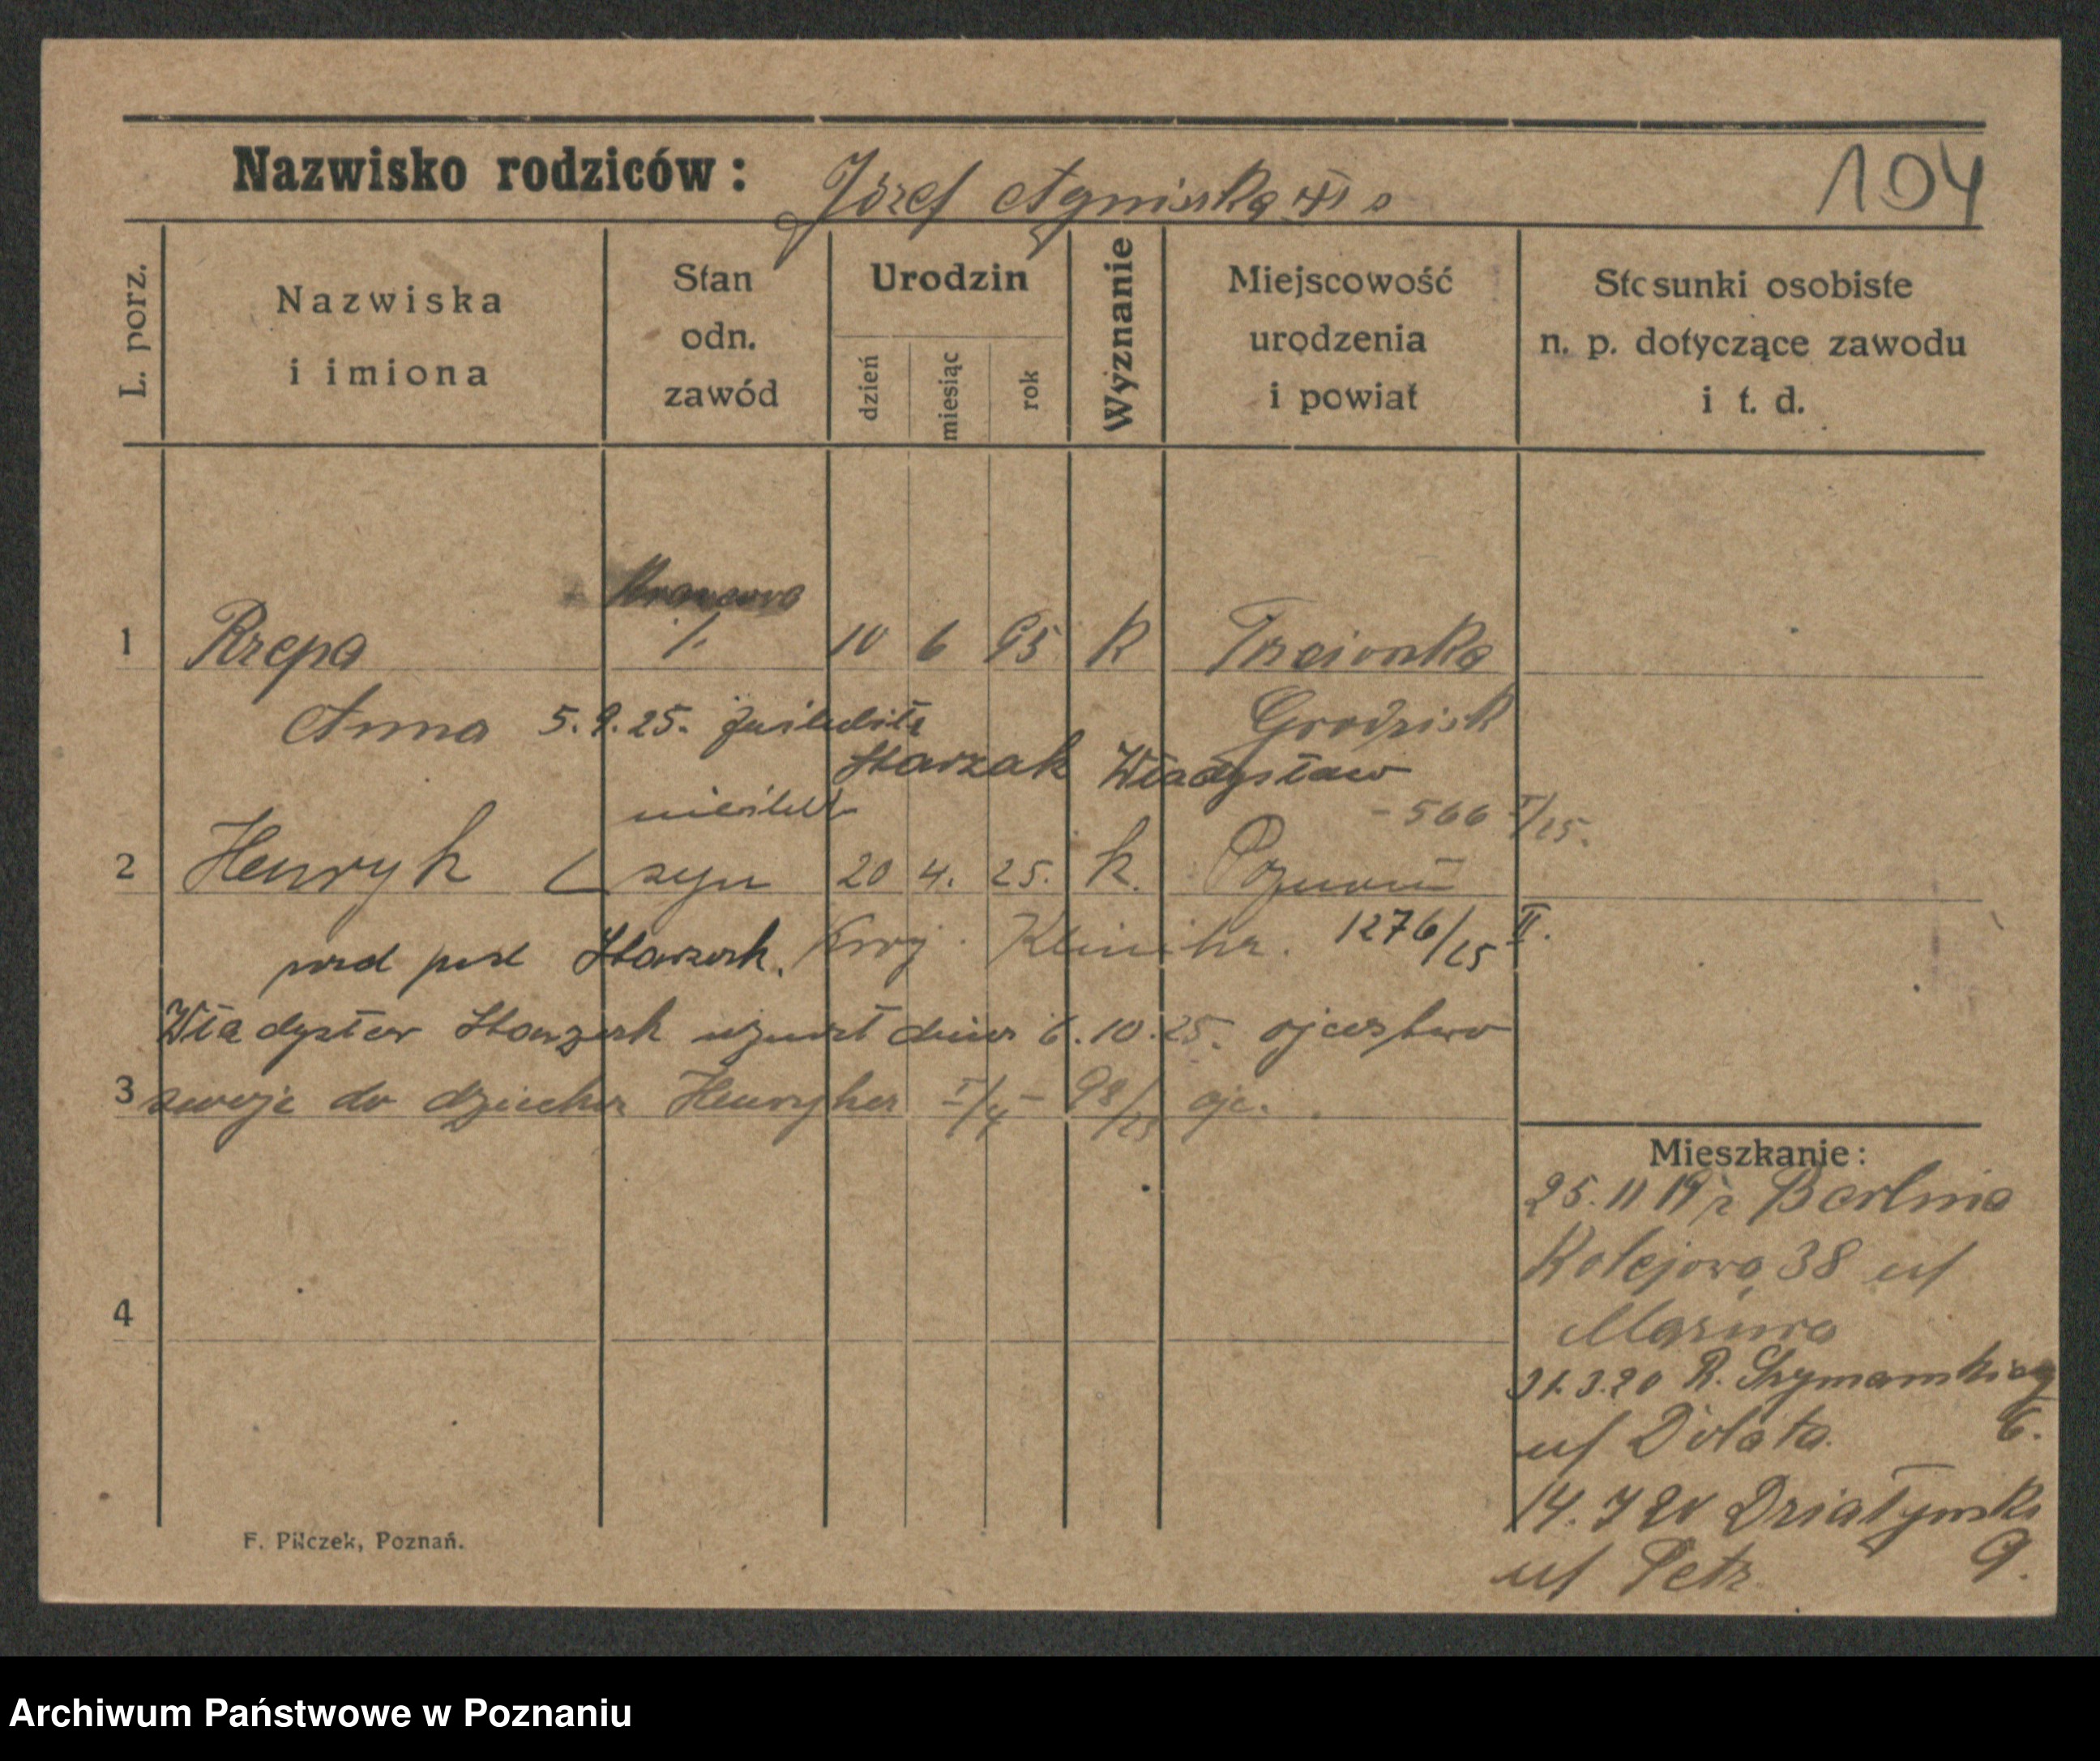 Nazwisko rodziców: Józef Agnieszka
104
L. porz.
Nazwiska
i imiona
Stan
odn.
zawód
Urodzin
dzień
miesiąc
rok
Wyznanie
Miejscowość
urodzenia
i powiat
Stosunki osobiste
n. p. dotyczące zawodu
i t. d.
1 Rzepa 10 6 95 K
Anna 5.9.25. Grodzisk
Starzak Władysław
- 566 I/25.
2 Henryk syn 20 4. 25. k. Poznań
Klinika. 1276/25 II.
Władysław uznał dnia 6.10.25. ojcostwo
3 swoje do dziecka Henryka 98/25 ojc.
4
Mieszkanie:
25.11 19 r Berlina
Kolejowa 38 u/
Mazura
31.3.20 R. Szymańskieg
u/ Dolata 6.
14.7 20 Działyńsk
u/ Petz 9.
F. Pilczek, Poznań.
Archiwum Państwowe w Poznaniu